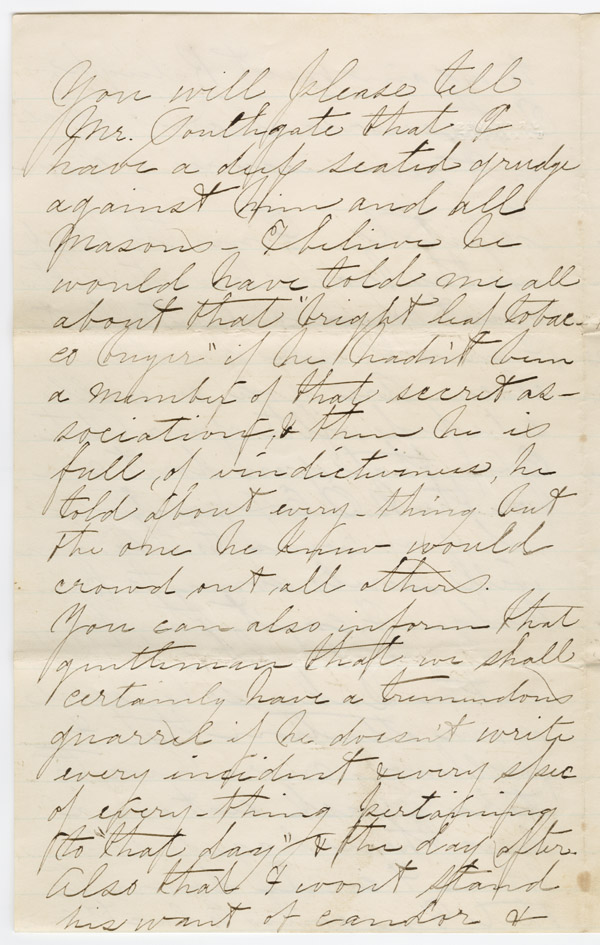 You will please tell
Mr. Southgate that I
have a deep seated grudge
against him and all
Masons - I believe he
would have told me all
about that "bright leaf tobac-
co buyer" if he hadn't been
a member of that secret as-
sociation, & then he is
full, of vindictiveness, he
told about every-thing but
the one he knew would
crowd out all others.
You can also inform that
gentleman that we shall
certainly have a tremendous
quarrel if he doesn't write
every incident & every spec
of every-thing pertaining
to "that day" & the day after.
Also that I wont stand
his want of candor &